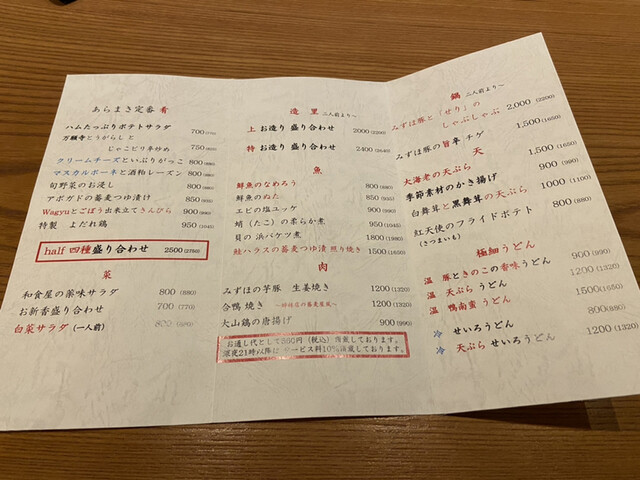 あらまき定番 肴
ハムたっぷりポテトサラダ 700(770)
万願寺とうがらしと
じゃこピリ辛炒め 750(825)
クリームチーズといぶりがっこ 800(880)
マスカルポーネと酒粕レーズン 800(880)
旬野菜のお浸し 800(880)
アボガドの蕎麦つゆ漬け 850(935)
Wagyuとごぼう出来立てきんぴら 900(990)
特製 よだれ鶏 950(1045)
half 四種盛り合わせ 2500(2750)
菜
和食屋の薬味サラダ 800(880)
お新香盛り合わせ 700(770)
白菜サラダ(一人前)
造里 二人前より～
上 お造り 盛り合わせ 2000(2200)
特 お造り 盛り合わせ 2400(2640)
魚
鮮魚のなめろう 800(880)
鮮魚のぬた 850(935)
エビの塩ユッケ 900(990)
蛸(たこ)の柔らか煮 950(1045)
貝の浜バケツ煮 1800(1980)
鮭ハラスの蕎麦つゆ漬 照り焼き 1500(1650)
肉
みずほの芋豚 生姜焼き 1200(1320)
合鴨焼き 1200(1320)
大山鶏の唐揚げ 900(990)
お通し代として550円(税込)頂戴しております。
深夜21時以降は サービス料10%頂戴しております。
鍋 二人前より～
みずほ豚と「せり」の
しゃぶしゃぶ 2,000(2200)
みずほ豚の旨辛チゲ 1,500(1650)
天
大海老の天ぷら 1,500(1650)
季節素材のかき揚げ 900(990)
白舞茸と黒舞茸の天ぷら 1000(1100)
紅天使のフライドポテト 800(880)
(さつまいも)
極細うどん
温 豚ときのこの香味うどん 900(990)
温 天ぷらうどん 1200(1320)
温 鴨南蛮うどん 1500(1650)
冷 せいろうどん 800(880)
冷 天ぷらせいろうどん 1200(1320)